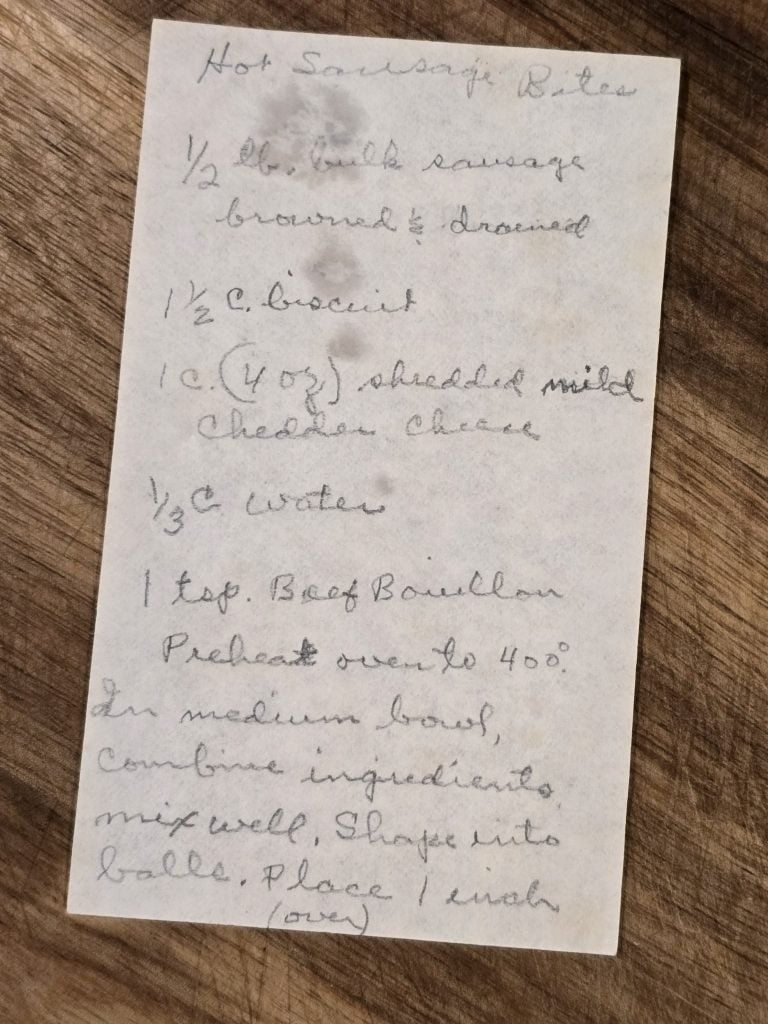 Hot Sausage Bites
1/2 lb. bulk sausage
browned & drained
1 1/2 c. biscuit
1 c. (4 oz) shredded mild
Chedder cheese
1/3 c water
1 tsp. Beef Bouillon
Preheat oven to 400°.
In medium bowl,
Combine ingredients,
mix well. Shape into
balls. Place 1 inch
(over)